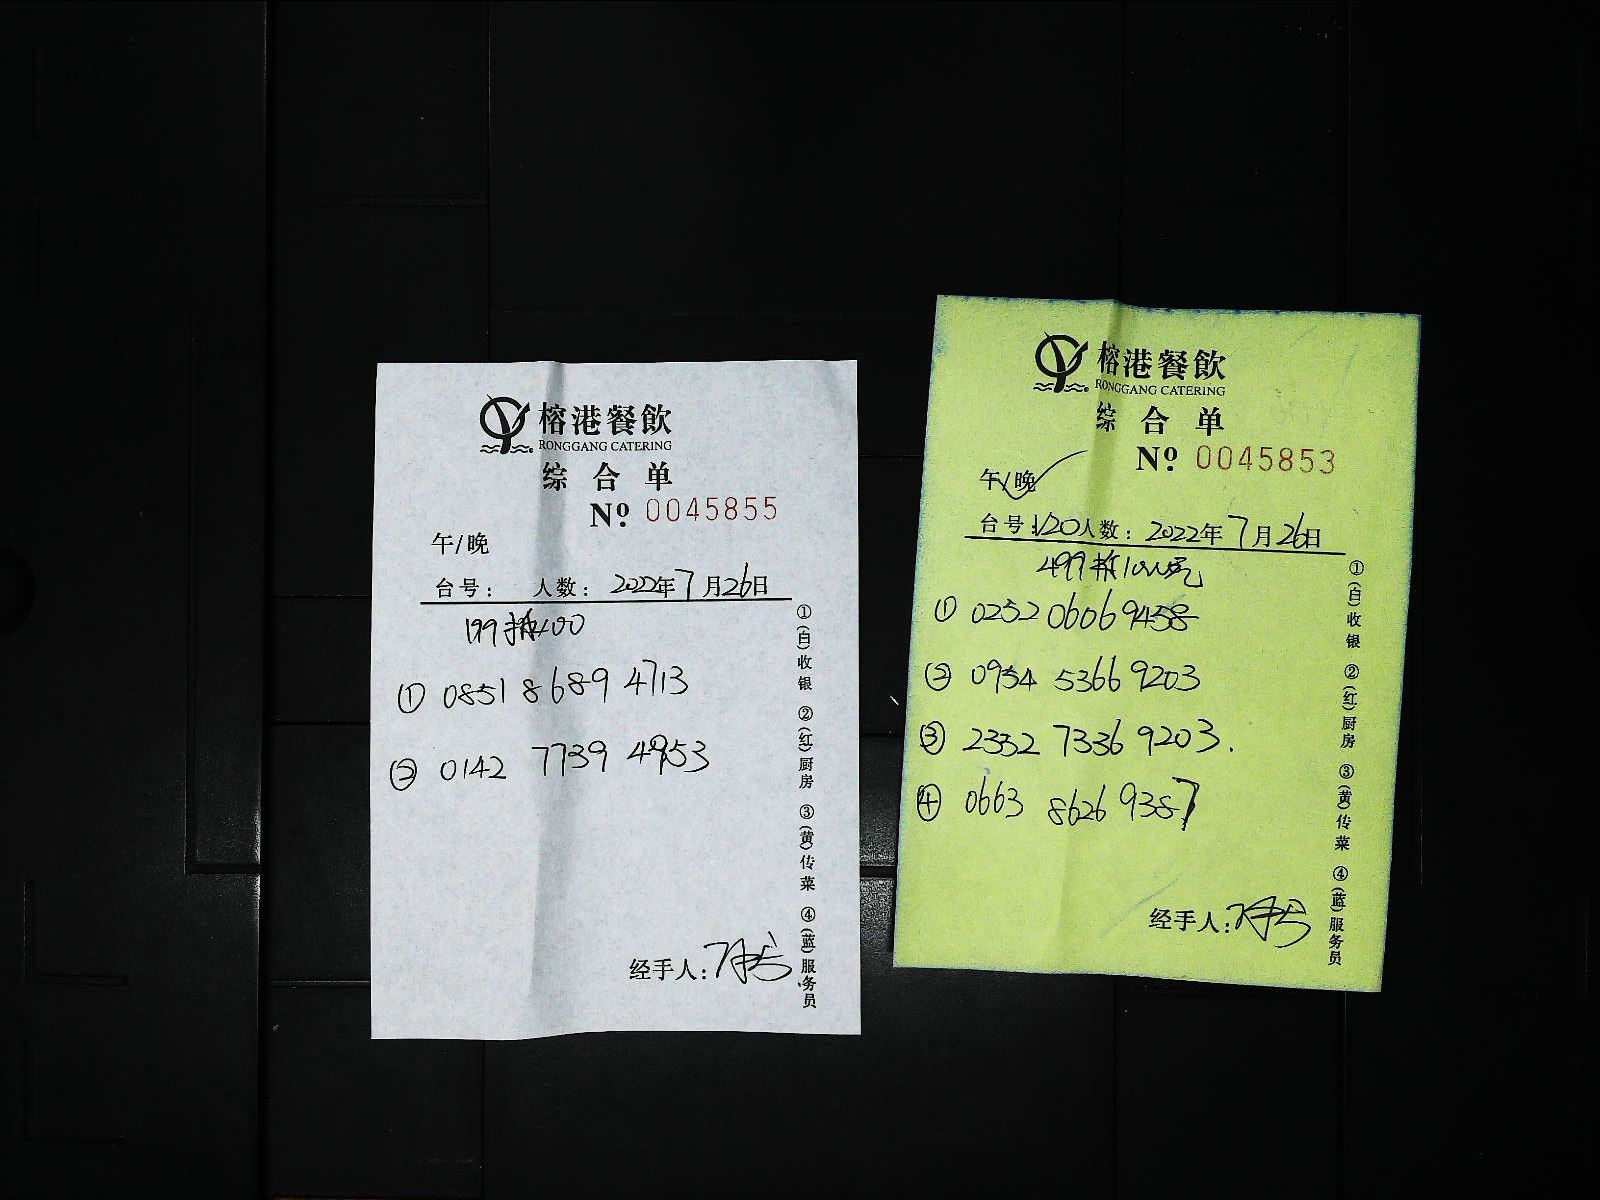 榕港餐飲
RONGGANG CATERING
综合单
Nº 0045855
午/晚
台号: 人数: 2022年7月26日
199抵400
① 0851 8689 4713
② 0142 7739 4953
经手人:
①(白)收银 ②(红)厨房 ③(黄)传菜 ④(蓝)服务员
榕港餐飲
RONGGANG CATERING
综合单
Nº 0045853
午/晚
台号:V20人数: 2022年7月26日
499抵1000元
① 0252 0606 9458
② 0954 5366 9203
③ 2332 7336 9203.
④ 0663 8626 9387
经手人:
①(白)收银 ②(红)厨房 ③(黄)传菜 ④(蓝)服务员